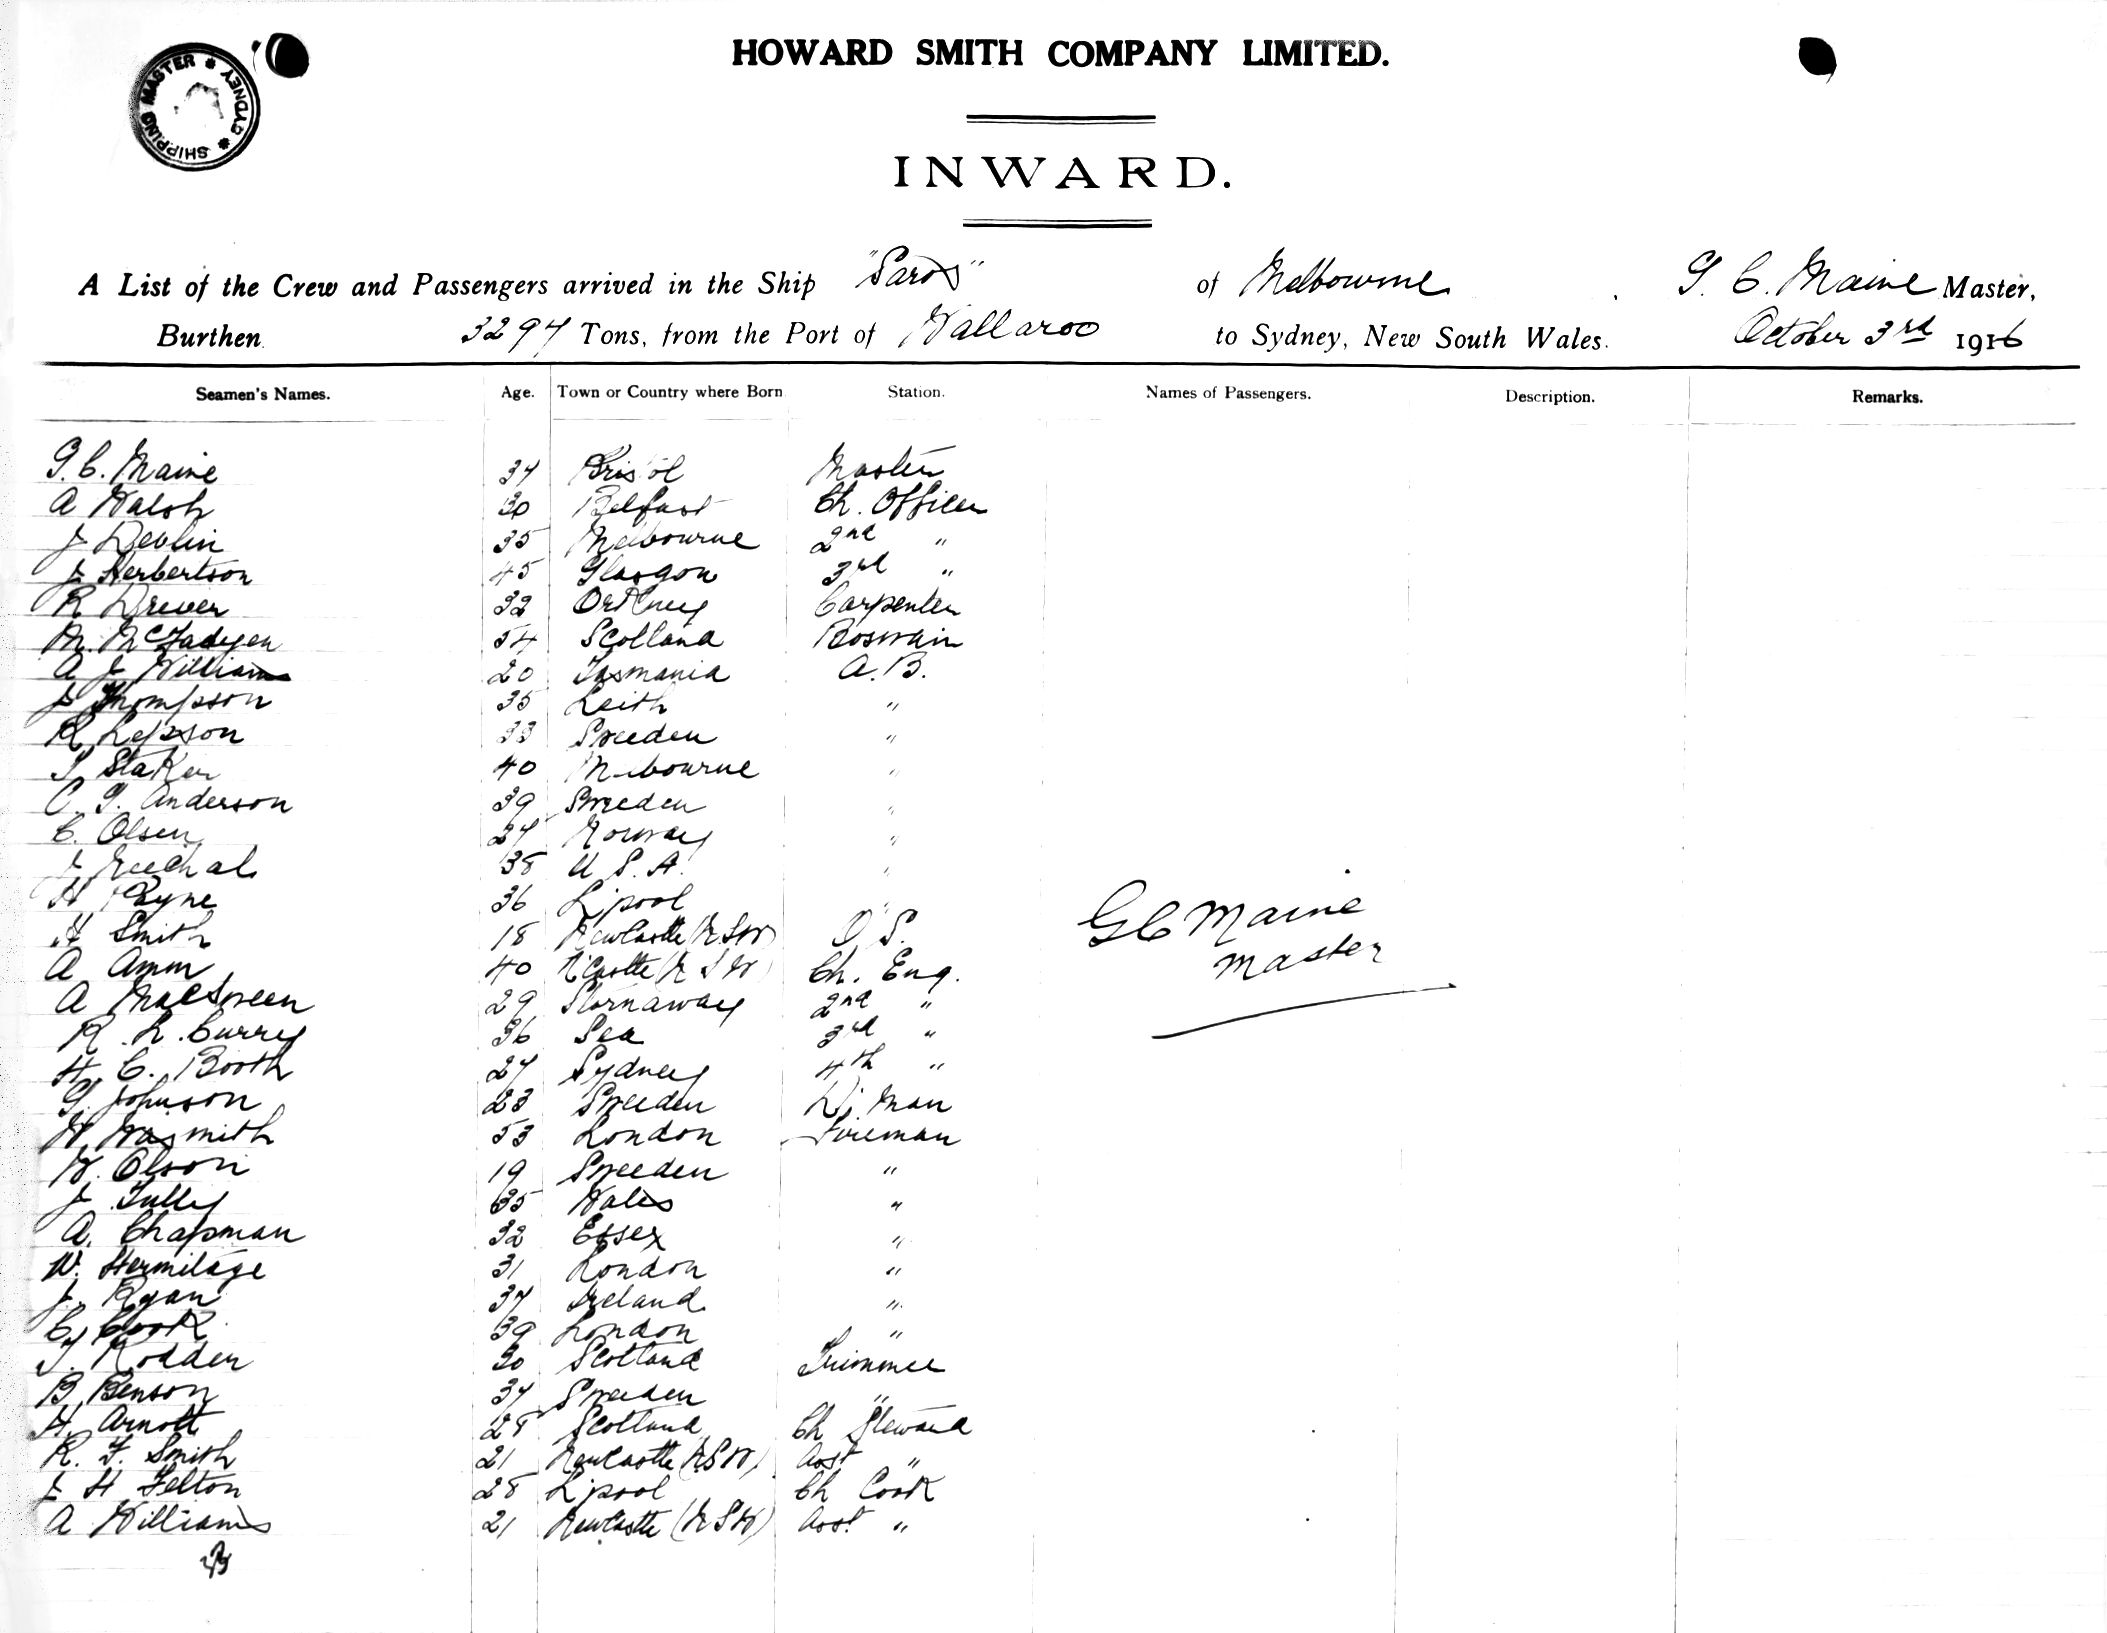 SHIPPING MASTER * SYDNEY *
HOWARD SMITH COMPANY LIMITED.
INWARD.
A List of the Crew and Passengers arrived in the Ship "Saros" of Melbourne. G. C. Maine Master,
Burthen 3297 Tons, from the Port of Wallaroo to Sydney, New South Wales. October 3rd 1916
Seamen's Names. Age. Town or Country where Born Station. Names of Passengers. Description. Remarks.
G. C. Maine 37 Bristol Master
A Walsh 30 Belfast Ch. Officer
J Devlin 35 Melbourne 2nd "
J Herbertson 45 Glasgow 3rd "
R Drever 32 Orkney Carpenter
M. McFadyen 54 Scotland Boswain
A J Williams 20 Tasmania A.B.
J Thompson 35 Leith "
R Lepson 33 Sweeden "
Staker 40 Melbourne "
C. G. Anderson 39 Sweeden "
C. Olsen 27 Norway "
J 38 U S. A. "
H Payne 36 L'pool "
H Smith 18 NewCastle (N.S.W) O S.
A Amm 40 N'Castle (N S W) Ch. Eng.
A MacSween 29 Stornaway 2nd "
R. L. Curry 36 Sea 3rd "
H. C. Booth 27 Sydney 4th "
G. Johnson 23 Sweeden D. Man
W. Wasmith 53 London Fireman
W. Olson 19 Sweeden "
J. Tully 35 Wales "
A. Chapman 32 Essex "
W. Hermitage 31 London "
J. Ryan 37 Ireland "
C. Cook 39 London "
T. Rodden 30 Scotland Trimmer
B. Benson 37 Sweeden "
H. Arnott 28 Scotland Ch Steward
R. F. Smith 21 NewCastle (NSW) Asst "
J H Felton 28 L'pool Ch Cook
A Williams 21 NewCastle (N S W) Asst "
G C Maine
Master